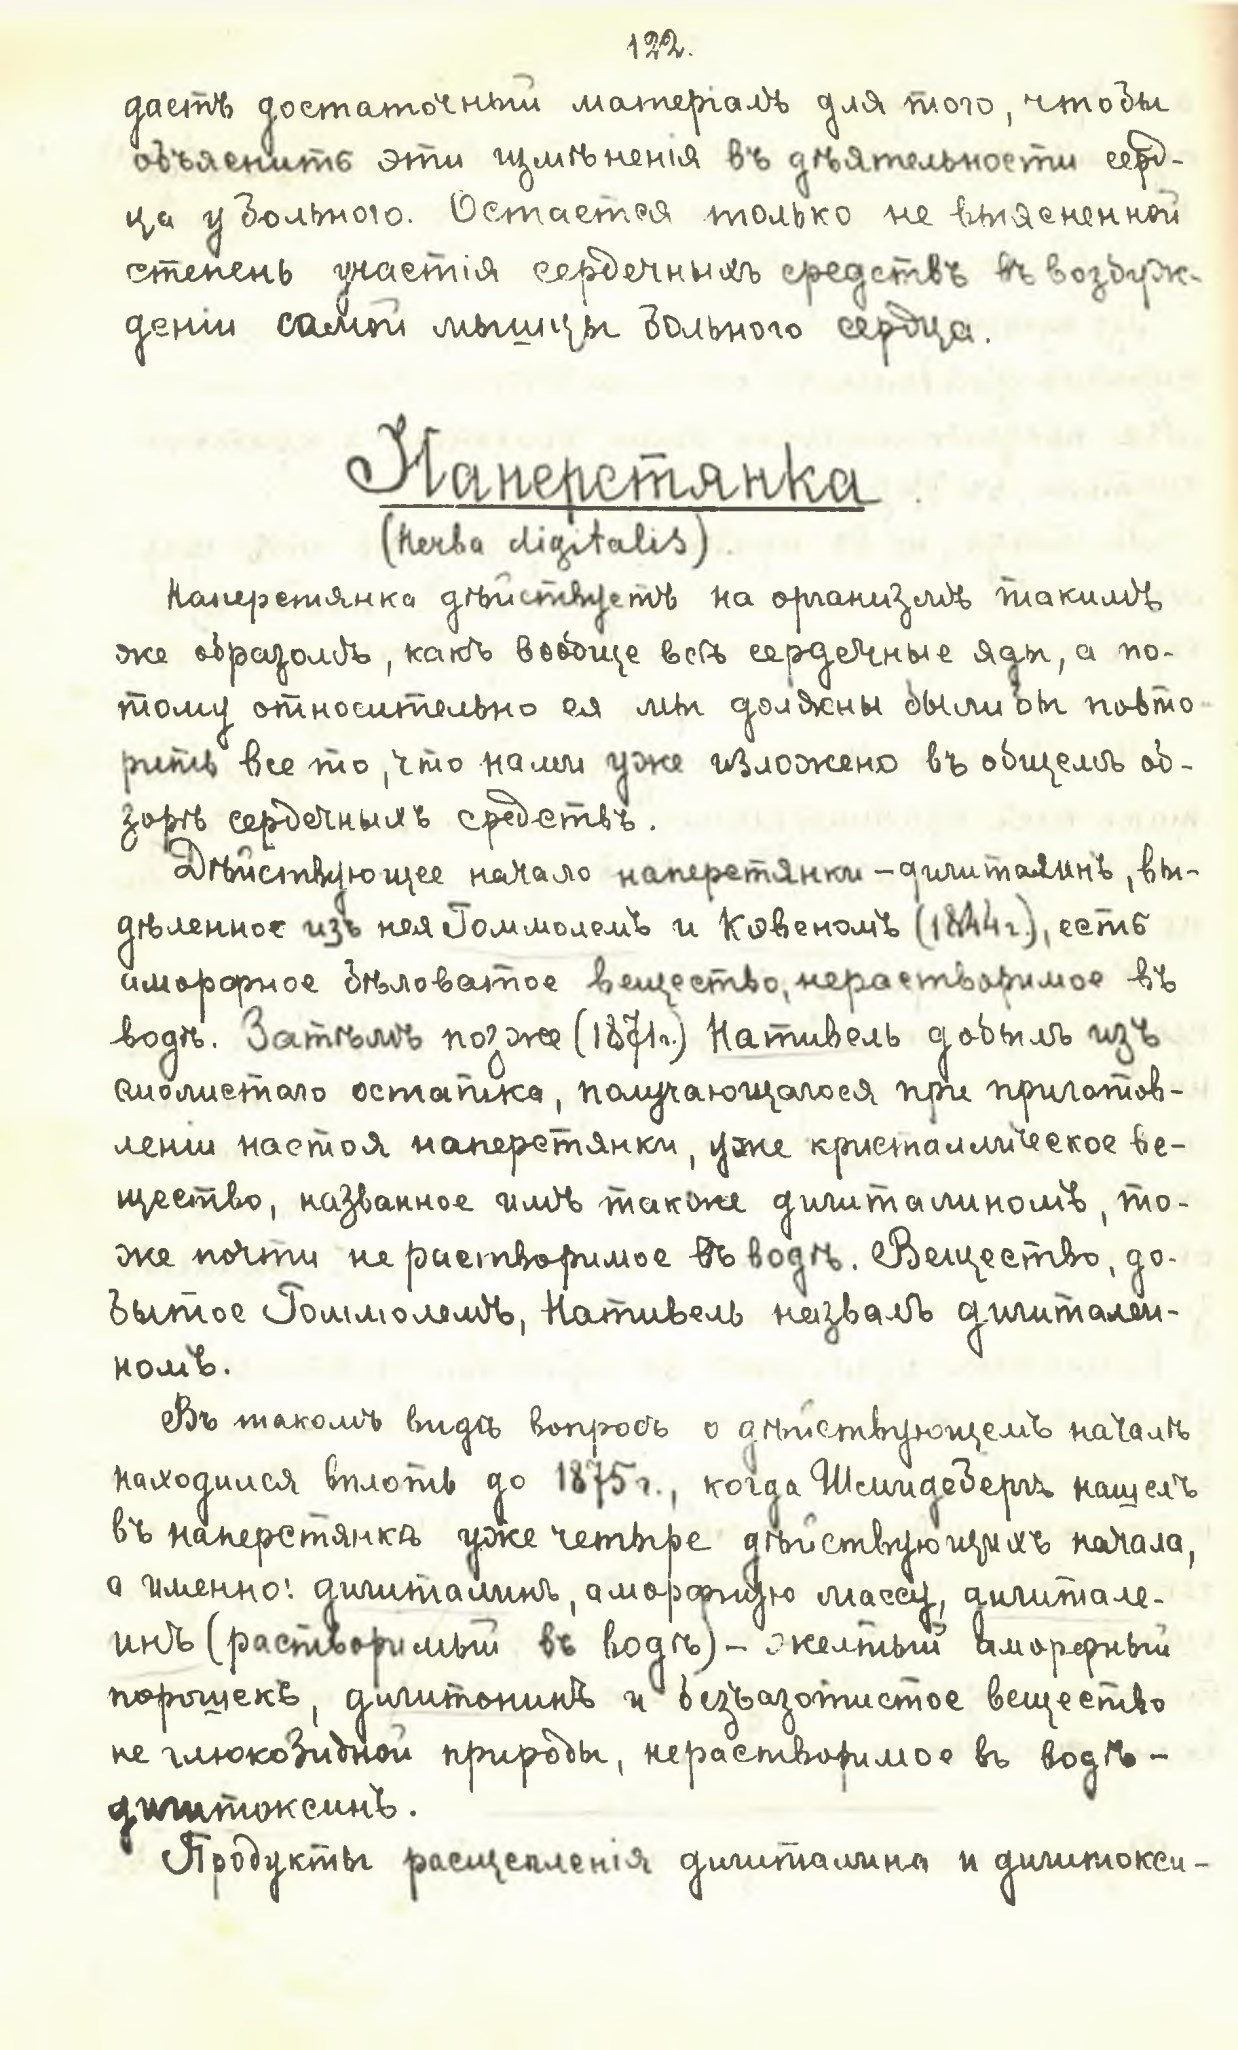 122.
дастъ достаточный матеріалъ для того, чтобы
объяснить эти измѣненія въ дѣятельности серд-
ца у больного. Остается только не выясненной
степень участія сердечныхъ средствъ въ возбуж-
деніи самой мышцы больного сердца.
Наперстянка
(Herba digitalis).
Наперстянка дѣйствуетъ на организмъ такимъ
же образомъ, какъ вообще всѣ сердечные яды, а по-
тому относительно ея мы должны были бы повто-
рить все то, что нами уже изложено въ общемъ об-
зорѣ сердечныхъ средствъ.
Дѣйствующее начало наперстянки – дигиталинъ, вы-
дѣленное изъ нея Гоммолемъ и Кевеномъ (1844 г.), есть
аморфное бѣловатое вещество, нерастворимое въ
водѣ. Затѣмъ позже (1871 г.) Нативель добылъ изъ
смолистаго остатка, получающагося при приготов-
леніи настоя наперстянки, уже кристаллическое ве-
щество, названное имъ также дигиталиномъ, то-
же почти нерастворимое въ водѣ. Вещество, до-
бытое Гоммолемъ, Нативель назвалъ дигиталеи-
номъ.
Въ такомъ видѣ вопросъ о дѣйствующемъ началѣ
находился вплоть до 1875 г., когда Шмидебергъ нашелъ
въ наперстянкѣ уже четыре дѣйствующихъ начала,
а именно: дигиталинъ, аморфную массу, дигитале-
инъ (растворимый въ водѣ) – желтый аморфный
порошекъ, дигитонинъ и безъазотистое вещество
не глюкозидной природы, нерастворимое въ водѣ –
дигитоксинъ.
Продукты расщепленія дигиталина и дигитокси-